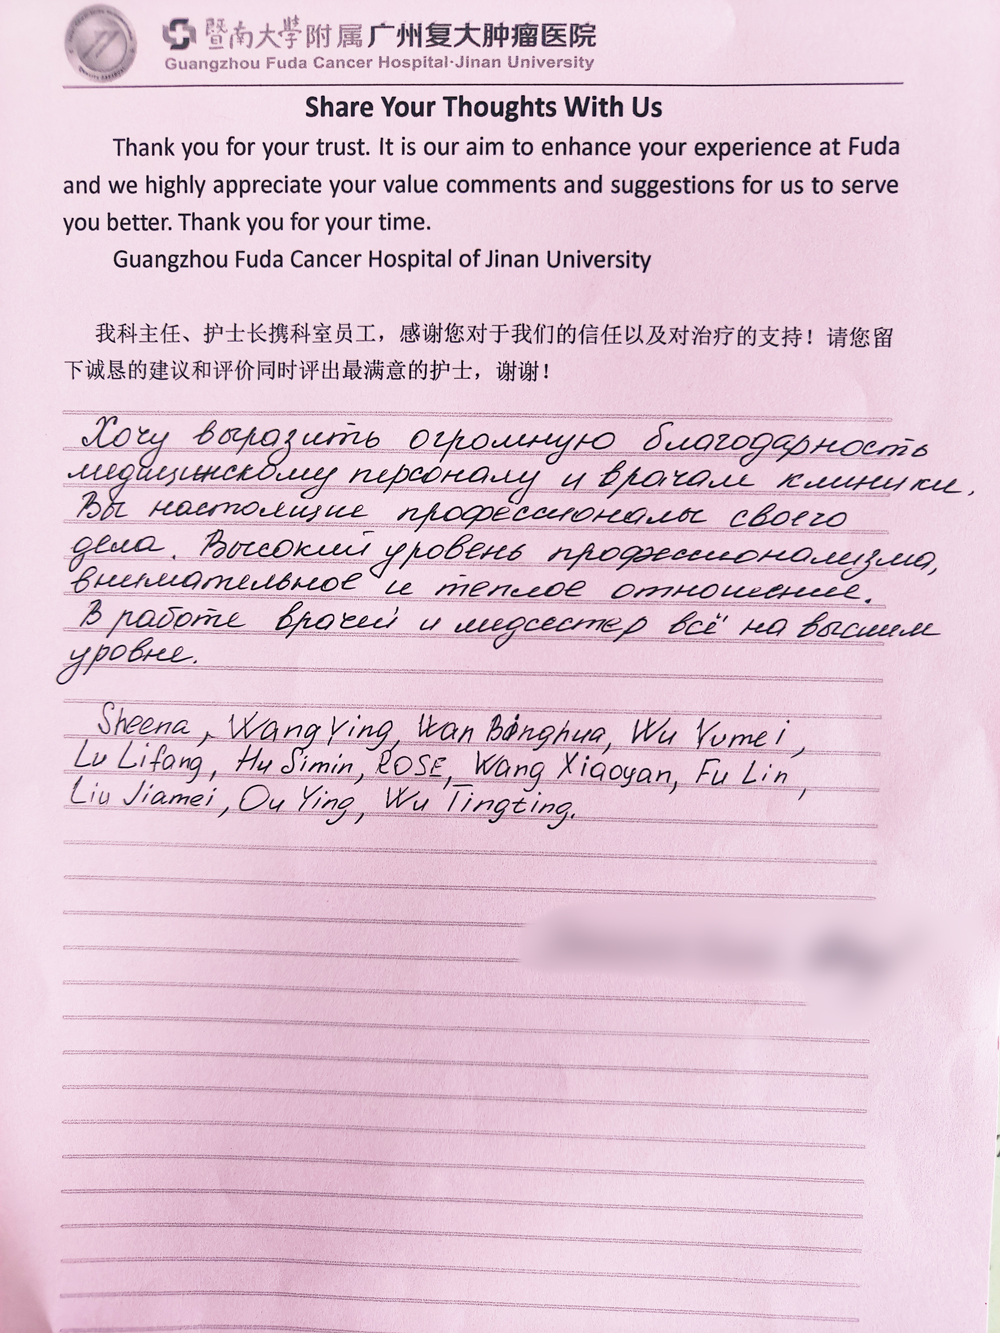 暨南大学附属广州复大肿瘤医院
Guangzhou Fuda Cancer Hospital·Jinan University
Share Your Thoughts With Us
Thank you for your trust. It is our aim to enhance your experience at Fuda
and we highly appreciate your value comments and suggestions for us to serve
you better. Thank you for your time.
Guangzhou Fuda Cancer Hospital of Jinan University
我科主任、护士长携科室员工，感谢您对于我们的信任以及对治疗的支持！请您留
下诚恳的建议和评价同时评出最满意的护士，谢谢！
Хочу выразить огромную благодарность
медицинскому персоналу и врачам клиники.
Вы настоящие профессионалы своего
дела. Высокий уровень профессионализма,
внимательное и теплое отношение.
В работе врачей и медсестер всё на высшем
уровне.
Sheena, Wang Ying, Wan Binghua, Wu Yumei,
Lu Lifang, Hu Simin, ROSE, Wang Xiaoyan, Fu Lin,
Liu Jiamei, Ou Ying, Wu Tingting.